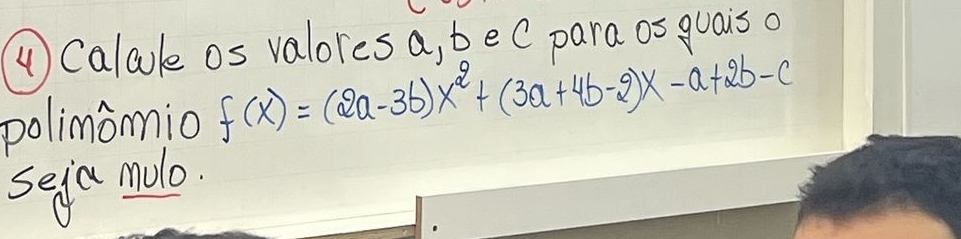 4 Calcule os valores a, b e c para os quais o
polinômio f(x) = (2a-3b)x² + (3a+4b-2)x - a+2b-c
seja nulo.